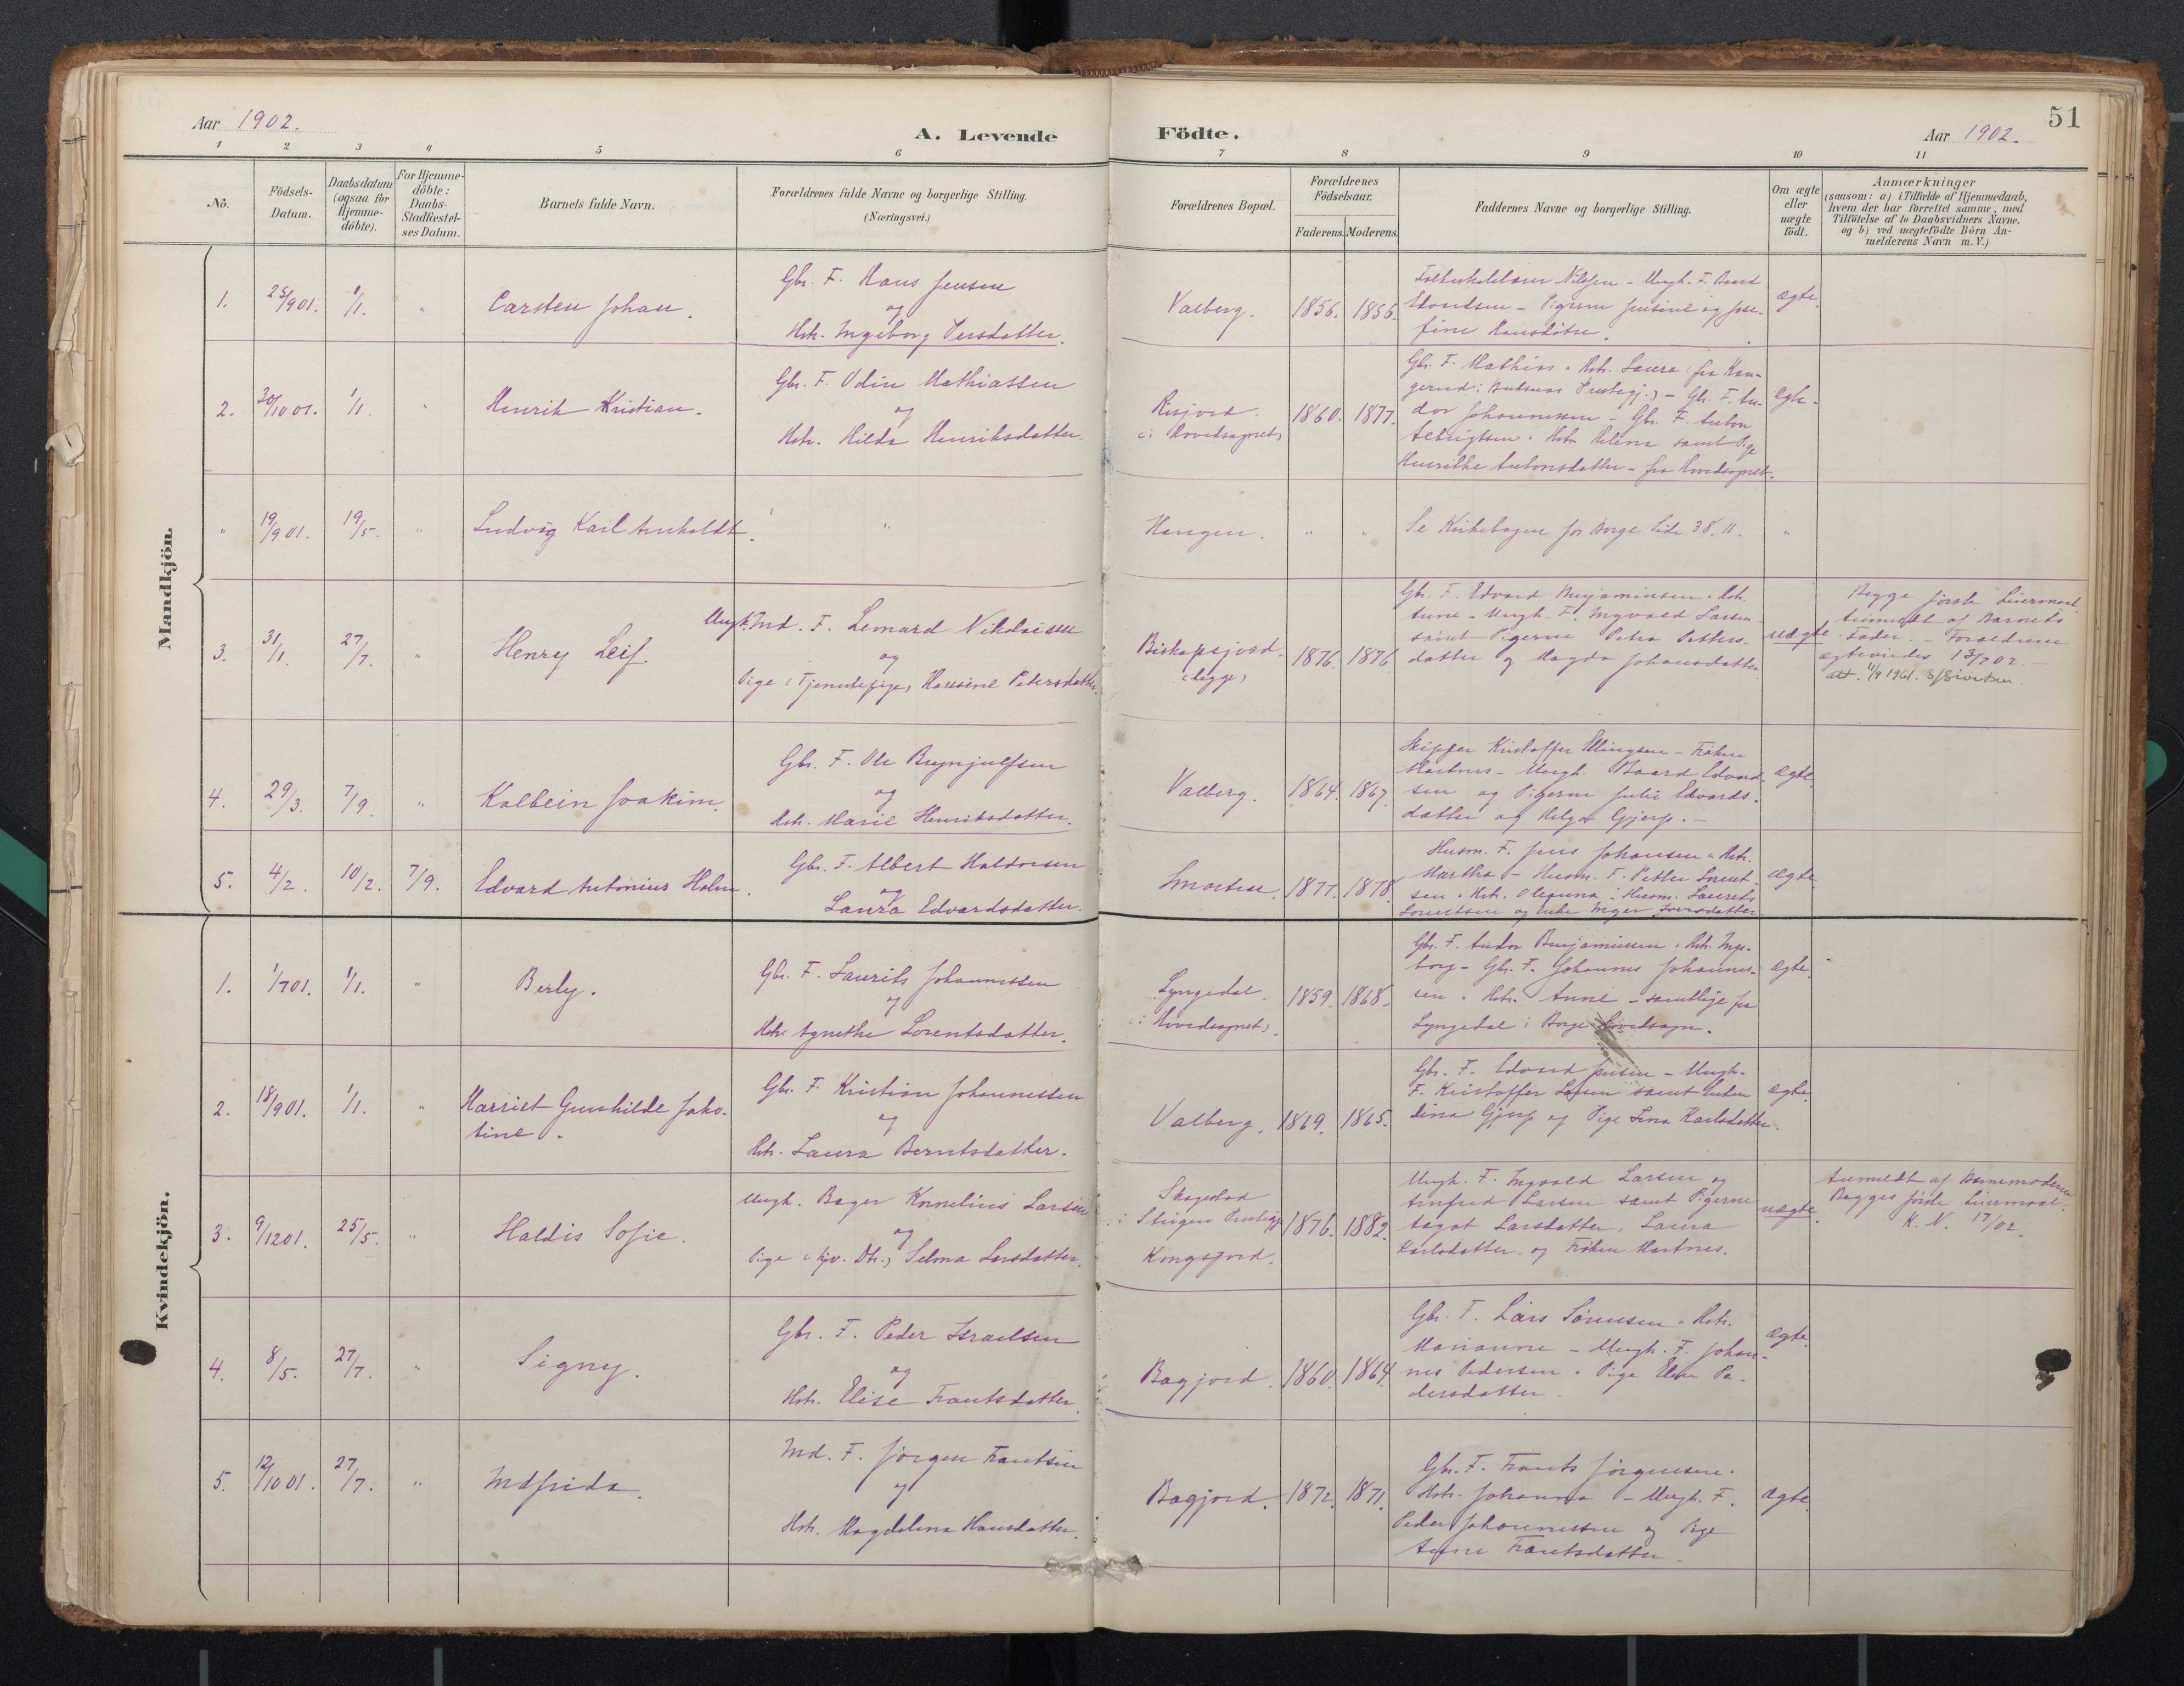 51
Aar 1902.
A. Levende Födte.
Aar 1902.
1 2 3 4 5 6 7 8 9 10 11
No.
Födsels-
Datum.
Daabsdatum
(ogsaa for
Hjemme-
döbte).
For Hjemme-
döbte:
Daabs-
Stadfæstel-
ses Datum.
Barnets fulde Navn.
Forældrenes fulde Navne og borgerlige Stilling.
(Næringsvei.)
Forældrenes Bopæl.
Forældrenes
Födselsaar.
Faderens. Moderens.
Faddernes Navne og borgerlige Stilling.
Om ægte
eller
uægte
födt.
Anmærkninger
(saasom: a) i Tilfælde af Hjemmedaab,
hvem der har forrettet samme, med
Tilföielse af to Daabsvidners Navne.
og b) ved uægtefödte Börn An-
melderens Navn m. V.)
Mandkjön.
1. 25/9 01. 1/1. " Carsten Johan.
Gbr. F. Hans Jensen
og
Hstr. Ingeborg Persdatter.
Valberg. 1856. 1856.
Folkeskolelærer Nilsen - Ungk. F. Baard
Edvardsen - Pigerne Jensine og Jose-
fine Hansdötre.
ægte.
2. 30/10 01. 1/1. " Henrik Kristian.
Gbr. F. Odin Mathiassen
og
Hstr. Hilda Henriksdatter.
Risjord.
(i Hovedsognet)
1860. 1877.
Gbr. F. Mathias " Hstr. Laura (fra
i Buksnes Prestegj.) - Gbr. F. An-
dor Johannessen - Gbr. F. Anton
" Hstr. Helena samt Pige
Henrikke Antonsdatter - fra Hovedsognet.
ægte.
" 19/9 01. 19/5. " Ludvig Karl Arnholdt.
"
Haugen. " "
Se Kirkebogen for Borge Side 38. 11.
"
3. 31/1. 27/7. " Henry Leif.
Ungk. Ind. F. Lenard Nikolaisen
og
Pige (Tjenestepige) Hansine Petersdatter.
Biskopsjord.
(begge)
1876. 1876
Gbr. F. Edvard Benjaminsen " Hstr.
Anne - Ungk. F. Ingvald Larsen
samt Pigerne Petra Petters-
datter og Magda Johansdatter
uægte.
Begge förste Leiermaal
Anmeldt af Barnets
Fader. - Forældrene
ægtevindes 13/7 02. -
att. 11/9 1961. S/Sivertsen.
4. 29/3. 7/9. " Kolbein Joakim.
Gbr. F. Ole Brynjulfsen
og
Hstr. Marie Henriksdatter.
Valberg. 1864. 1867.
Skipper Kristoffer Ellingsen - Fröken
Hartnes - Ungk. Baard Edvard
sen og Pigerne Julie Edvards-
datter og Helga Gjerp. -
ægte.
5. 4/2. 10/2. 7/9. Edvard Antonius Holm.
Gbr. F. Albert Haldorsen
og
Laura Edvardsdatter.
Smorten. 1877. 1878.
Husm. F. Jens Johansen " Hstr.
Martha - Husm. F. Petter Lorent-
sen " Hstr. Oleanna - Husm. Laurits
Lorentsen og Enke Inger Iversdatter
ægte.
Kvindekjön.
1. 1/7 01. 1/1. " Berly.
Gbr. F. Laurits Johannessen
og
Hstr. Agnethe Lorentsdatter.
Lyngedal.
(i Hovedsognet).
1859. 1868.
Gbr. F. Andor Benjaminsen " Hstr. Inge-
borg - Gbr. F. Johannes Johannes-
sen " Hstr. Anne - samtlige fra
Lyngedal i Borge Hovedsogn.
ægte.
2. 18/9 01. 1/1. " Harriet Gunhilde Jako-
bine.
Gbr. F. Kristian Johannessen
og
Hstr. Laura Berntsdatter.
Valberg. 1869. 1865.
Gbr. F. Edvard Jensen - Ungk.
F. Kristoffer samt Enken
Lina Gjerp og Pige Lena Karlsdatter.
ægte.
3. 9/12 01. 25/5. " Haldis Sofie.
Ungk. Bager Kornelius Larsen
og
Pige (Gbr. Dtr.) Selma Larsdatter.
Skagestad
i Steigen Prestegj.
Kongsjord.
1876. 1882.
Ungk. F. Ingvald Larsen og
Arnfred Larsen samt Pigerne
Aagot Larsdatter, Laura
Karlsdatter og Fröken Hartnes.
uægte.
Anmeldt af Barnemoderen
Begges förste Leiermaal.
K. N. 17/02.
4. 8/5. 27/7. " Signy.
Gbr. F. Peder Israelsen
og
Hstr. Elise Frantsdatter.
Bagjord. 1860. 1864.
Gbr. F. Lars Sörensen " Hstr.
Marianne - Ungk. F. Johan-
nes Pedersen " Pige Elen Pe-
dersdatter.
ægte.
5. 12/10 01. 27/7. " Indfrida.
Ind. F. Jörgen Frantsen
og
Hstr. Magdalena Hansdatter.
Bagjord. 1872. 1871.
Gbr. F. Frants Jörgensen.
Hstr. Johanna - Ungk. F.
Peder Johannessen og Pige
Anne Frantsdatter.
ægte.